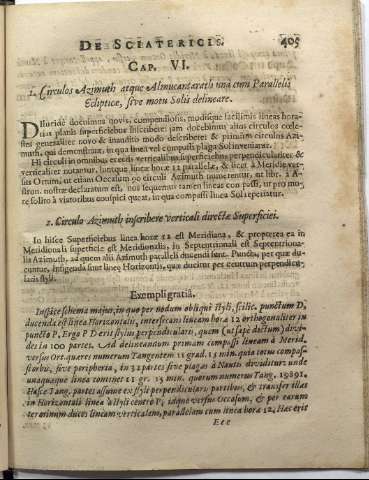 DE SCIATERICIS. 405
CAP. VI.
1. Circulos Azimuth atque Almucantarath una cum Parallelis
Eclipticæ, sive motu Solis delineare.
docuimus novis, compendiosis, modisque facilimis lineas hora-
rias planis superficiebus inscribere: jam docebimus alios circulos cœle-
stes generaliter novo & inaudito modo describere: & primùm circulos Azi-
muth, qui demonstrant, in qua linea vel compassi plaga Sol inveniatur.
Hi circuli in omnibus erectis verticalibus superficiebus perpendiculariter &
verticaliter notantur, suntque lineæ horæ 12 parallelæ, & licet à Meridie ver-
sus Ortum, at etiam Occasum 90 circuli Azimuth numerentur, ut libr. 2 A-
stron. nostræ declaratum est, nos sequemur tamen lineas compassi, ut pro mo-
re solito à viatoribus conspici queat, in qua compassi linea Sol reperiatur.
2. Circulos Azimuth inscribere verticali directæ Superficiei.
In hisce Superficiebus linea horæ 12 est Meridiana, & propterea ea in
Meridionali superficie est Meridionalis, in Septentrionali est Septentriona-
lis Azimuth, ad quem alii Azimuth paralleli ducendi sunt. Puncta, per quæ du-
cuntur, insigenda sunt lineæ Horizontis, quæ ducitur per centrum perpendicu-
laris styli.
Exempli gratiâ.
Inspice schema majus, in quo per nodum obliqui styli, scilic. punctum D,
ducenda est linea Horizontalis, intersecans lineam horæ 12 orthogonaliter in
puncto P. Ergo P D erit stylus perpendicularis, quem (ut sæpe doctum) divi-
des in 100 partes. Ad delineandum primam compassi lineam à Merid.
versus Ort. quære numerum Tangentem 11 grad. 15 min. quia totus compas-
sus, sive peripheria, in 32 partes sive plagas à Nautis dividitur: unde
unaquæque linea continet 11 gr. 15 min. quorum numerus Tang. 19891.
Hasce Tang. partes assume ex styli perpendicularis partibus, & transfer illas
in Horizontali linea à styli centro P, idque versus Occasum, & per earum
terminum duces lineam verticalem, parallelam cum linea horæ 12, Hæc erit
Eee